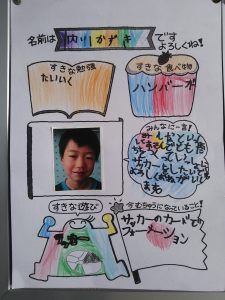 名前は
内川かずき
です
よろしくね!
すきな勉強
たいいく
すきな食べ物
ハンバーガー
みんなに一言!
サッカー
すきな遊び
今むちゅうになっていること!
サッカー
サッカーのカードで
フォーメーション